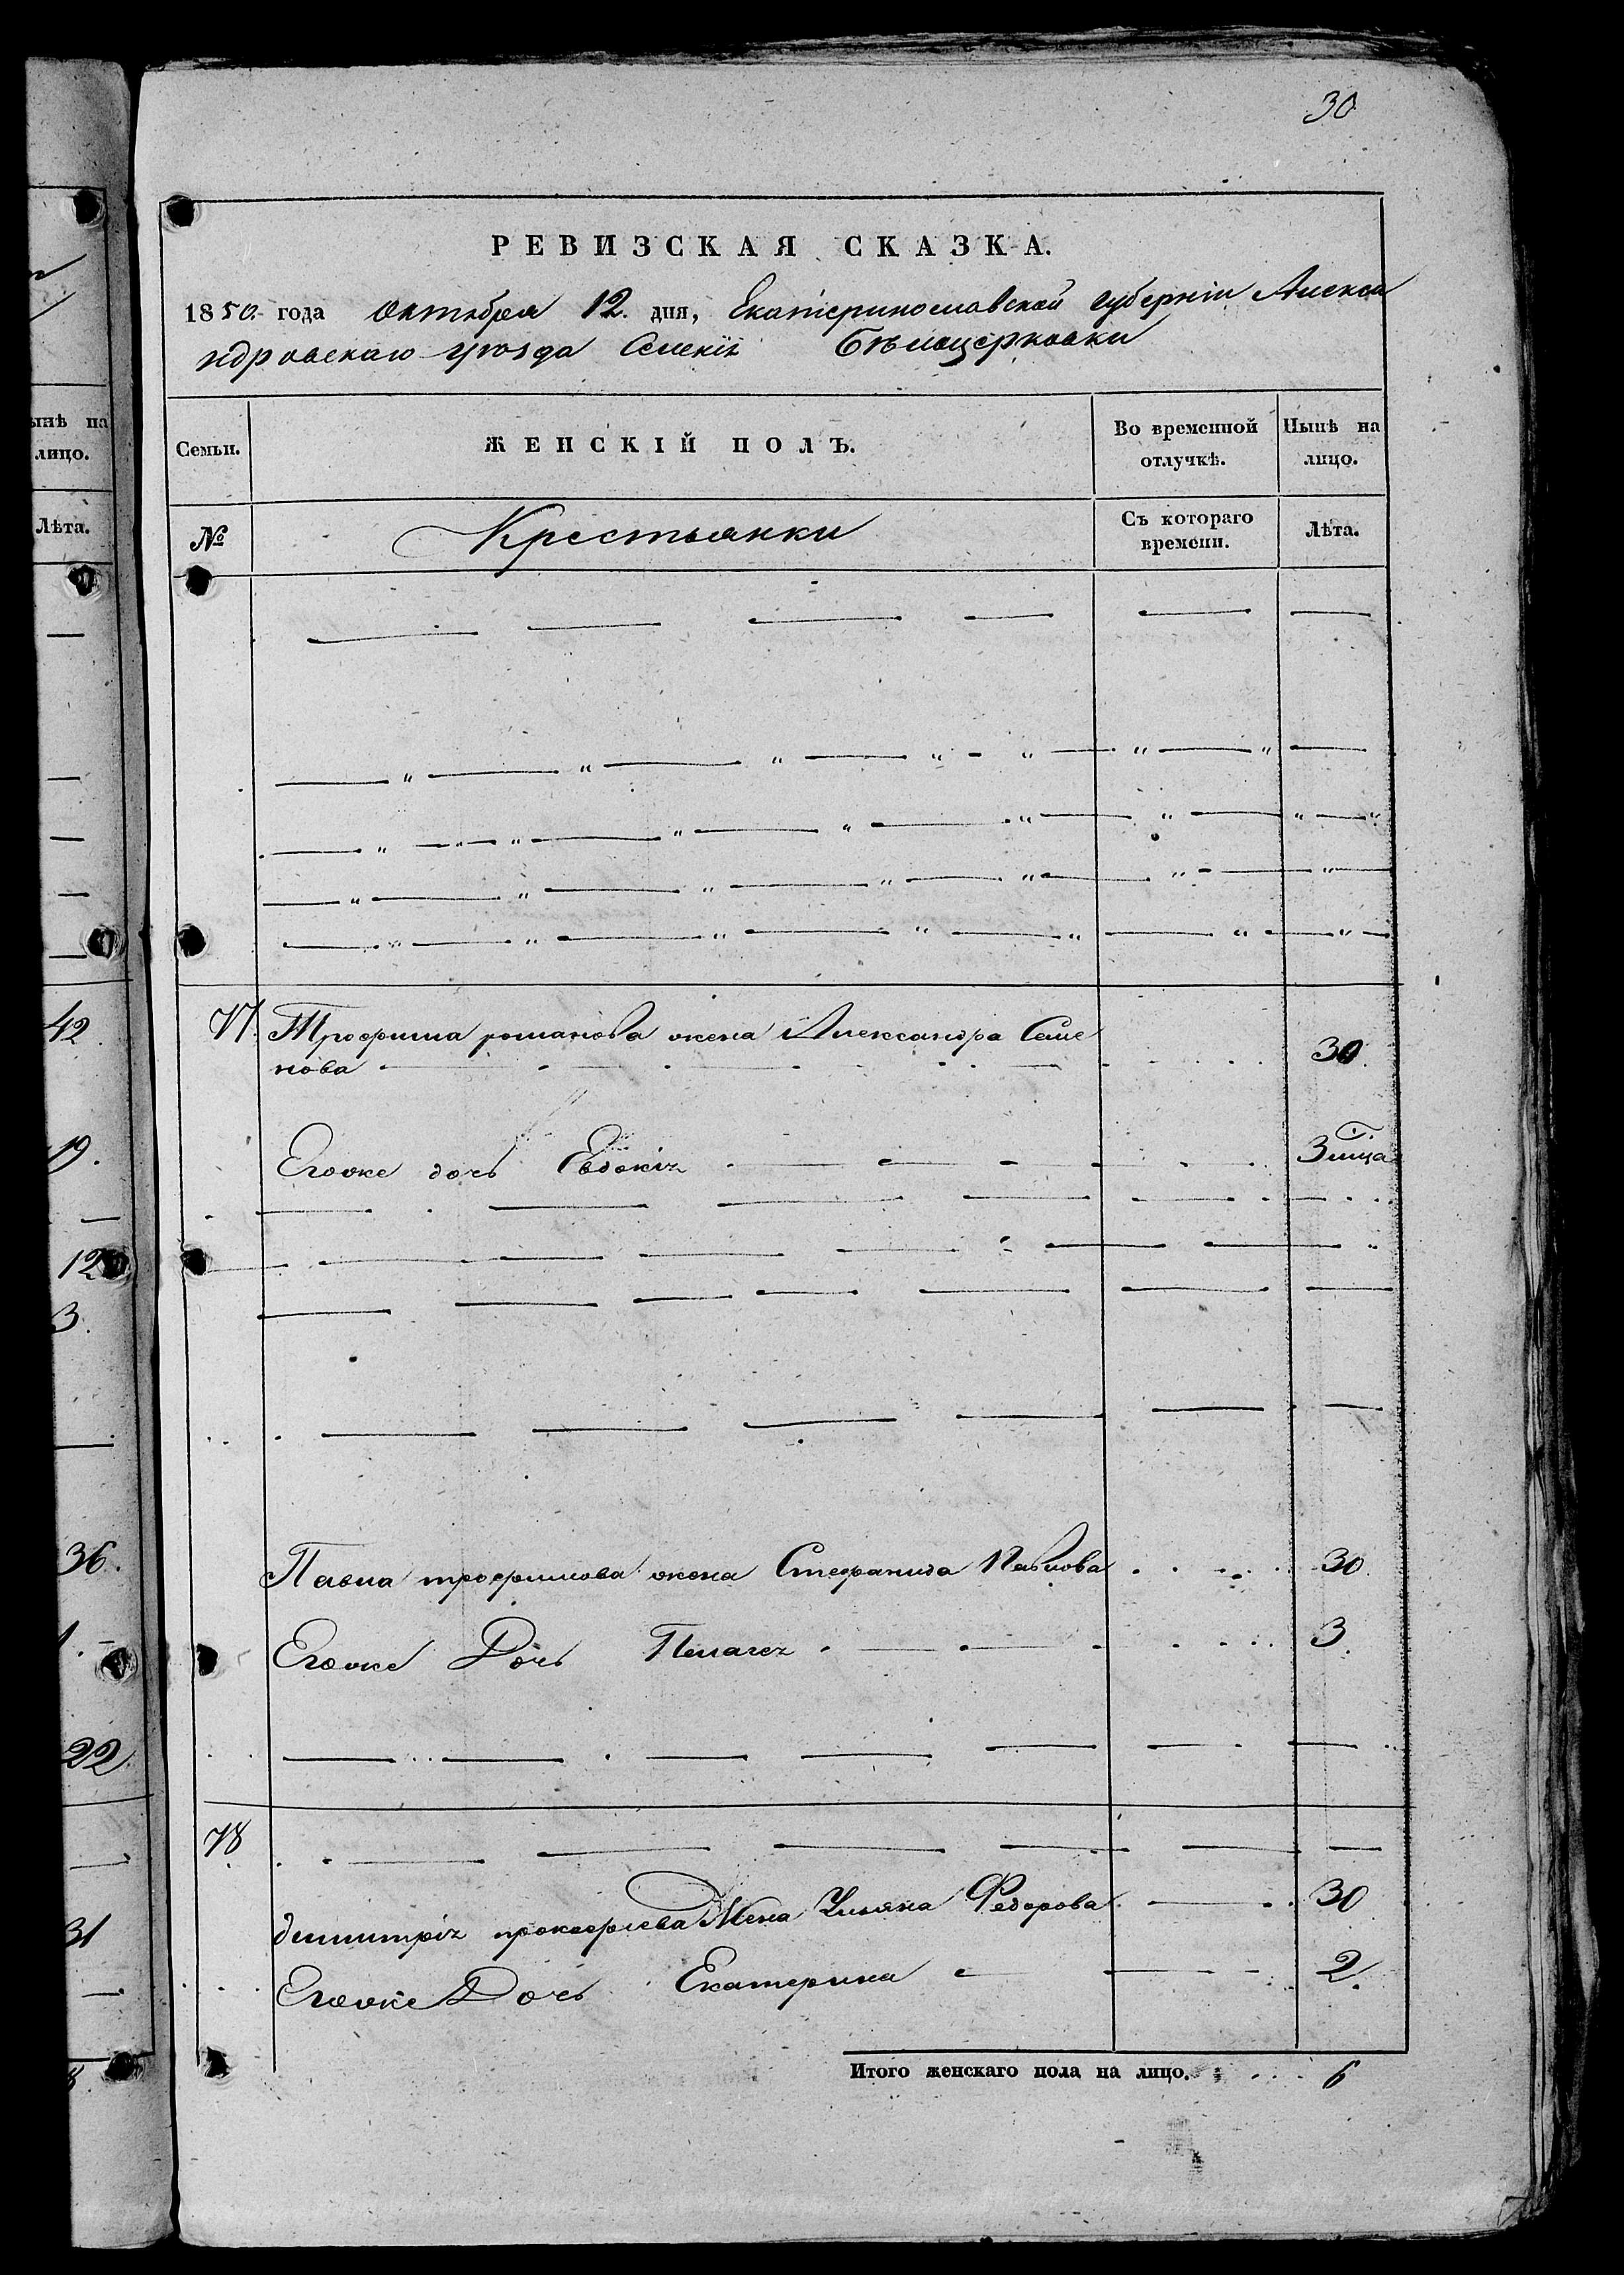 30
РЕВИЗСКАЯ СКАЗКА.
1850 года Октября 12. дня, Екатеринославской губернiи Алекса
ндровскаго уѣзда Селенiя Бѣлоцерковки
Семьи. ЖЕНСКIЙ ПОЛЪ. Во временной отлучкѣ. Нынѣ на лицо.
№ Крестьянки Съ котораго времени. Лѣта.
77. Трофима романова жена Александра Семе
нова 30.
Егоже дочь Евдокiя 3 мца
Павла трофимова жена Стефанида Павлова 30.
Егоже Дочь Пелагея 3.
78
димитрiя прокофиева Жена Ульяна Федорова 30
Егоже Дочь Екатерина 2.
Итого женскаго пола на лицо. 6
ынѣ на
лицо.
Лѣта.
42
19.
12
3.
36.
1.
22.
31